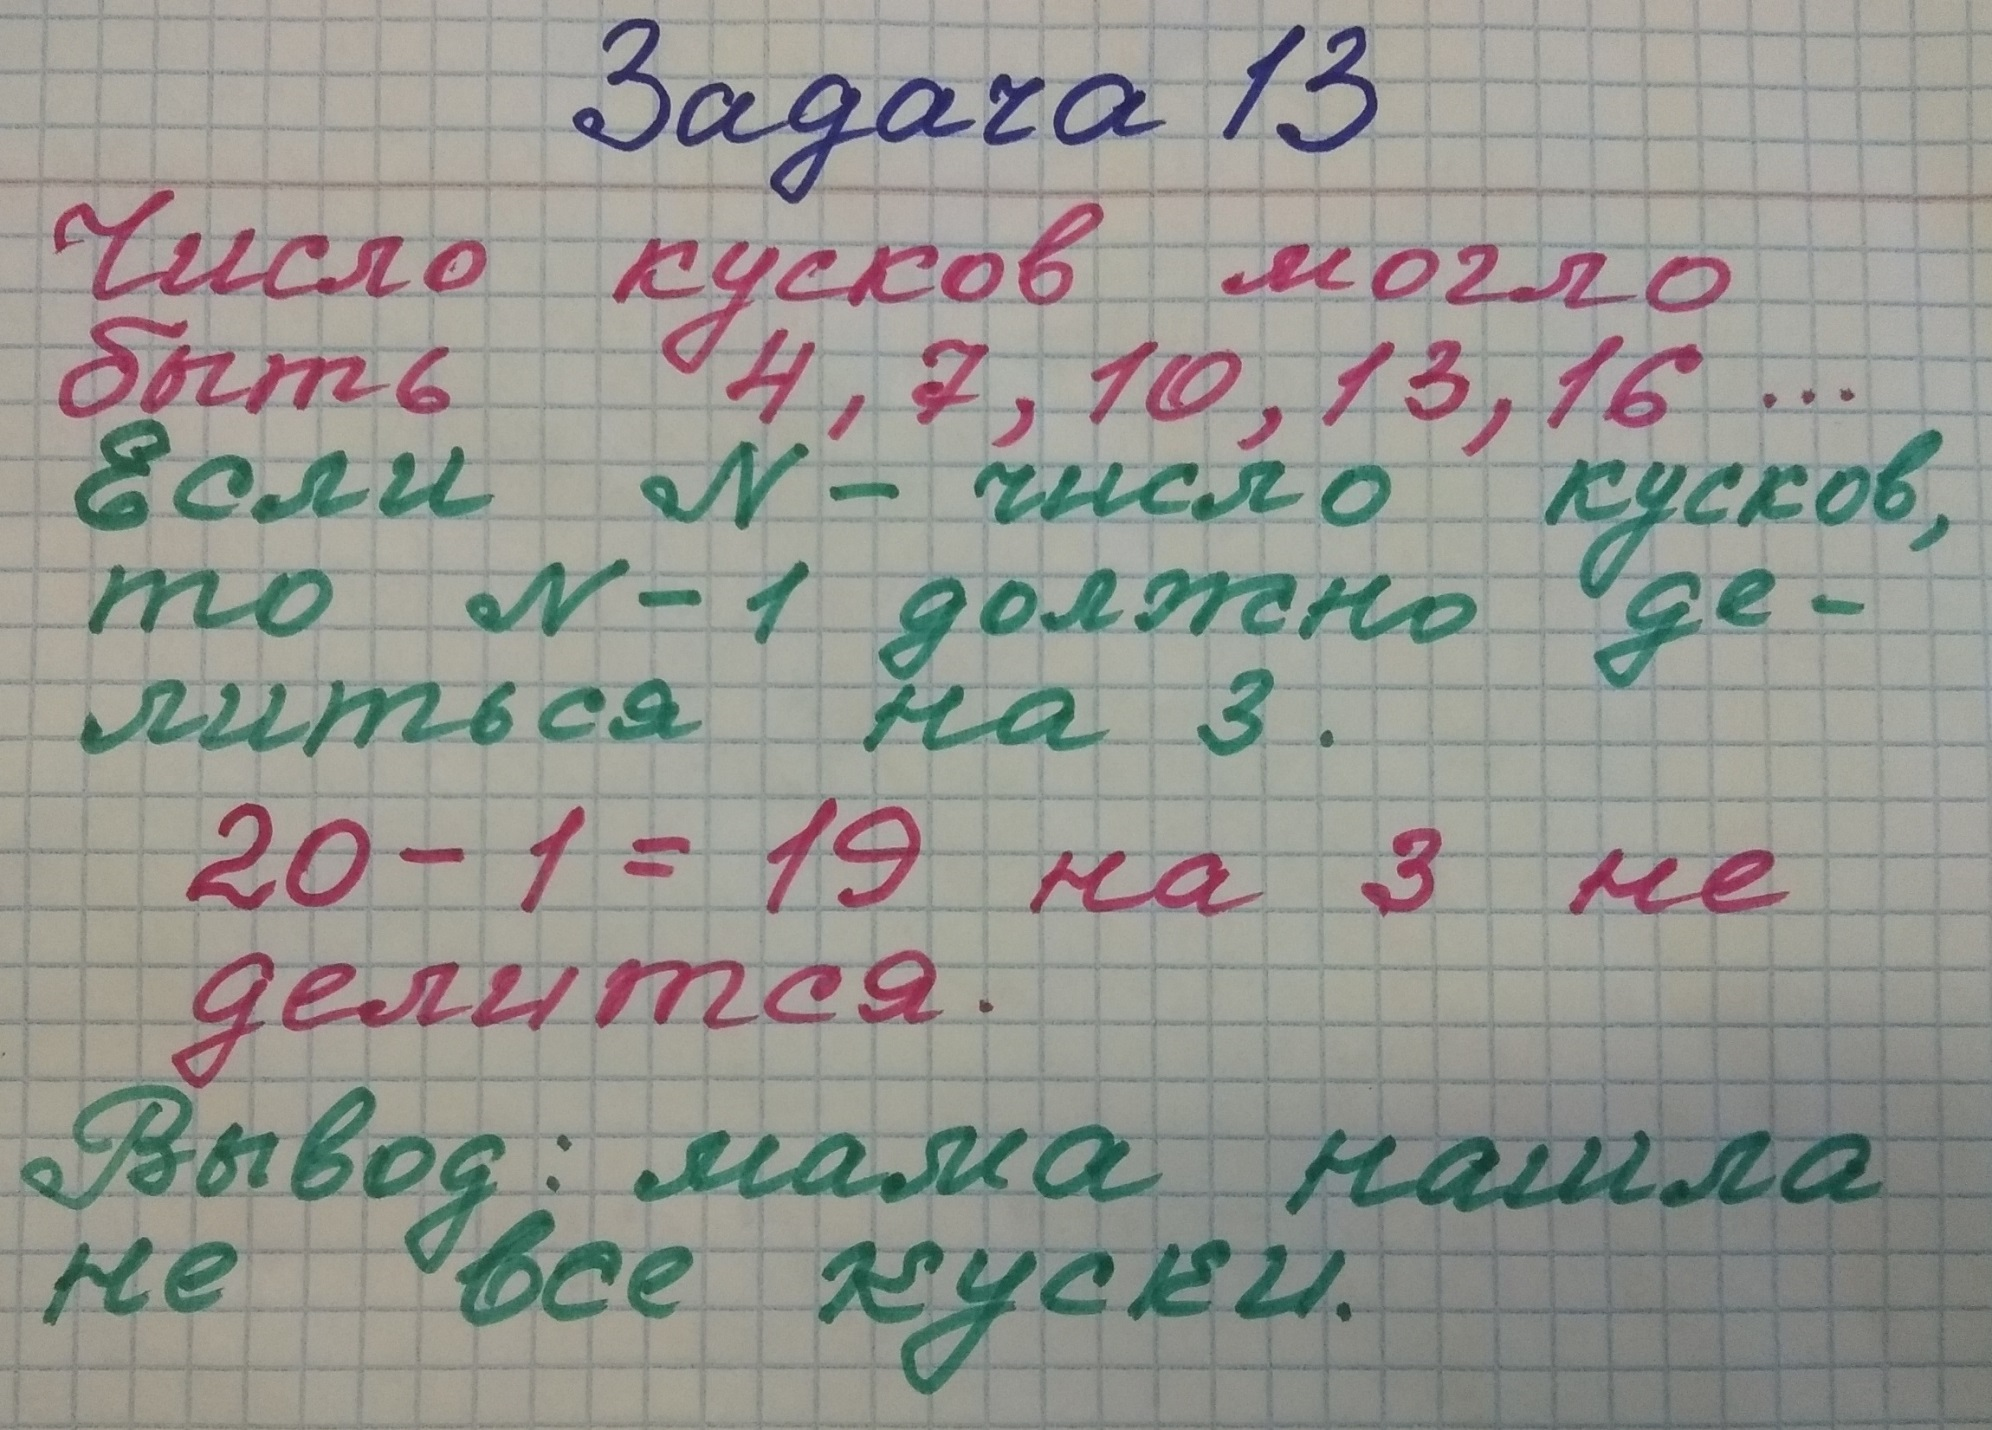 Задача 13
Число кусков могло
быть 4, 7, 10, 13, 16 ...
Если N - число кусков,
то N - 1 должно де-
литься на 3.
20 - 1 = 19 на 3 не
делится.
Вывод: мама нашла
не все куски.